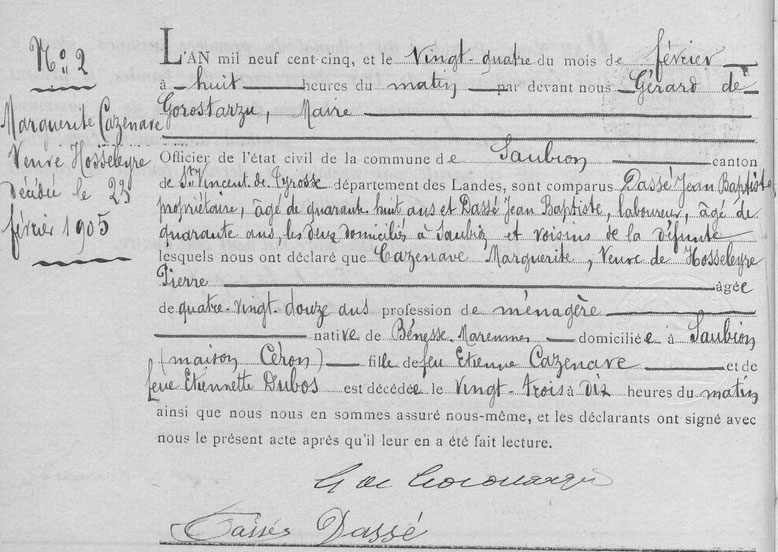 N° 2
Marguerite Cazenave
Veuve Hosseleyre
décédée le 23
février 1905
L'AN mil neuf cent-cinq, et le Vingt-quatre du mois de février
à huit heures du matin par devant nous Gérard de
Gorostarzu, Maire
Officier de l'état civil de la commune de Saubion canton
de St Vincent de Tyrosse département des Landes, sont comparus Dassé Jean Baptiste,
propriétaire, âgé de quarante huit ans et Dassé Jean Baptiste, laboureur, âgé de
quarante ans, les deux domiciliés à Saubion et voisins de la défunte
lesquels nous ont déclaré que Cazenave Marguerite, Veuve de Hosseleyre
Pierre âgée
de quatre-vingt douze ans profession de ménagère
native de Bénesse Maremnes domiciliée à Saubion
(maison Céron) fille de feu Etienne Cazenave et de
feue Etiennette Dubos est décédée le Vingt-trois à dix heures du matin
ainsi que nous nous en sommes assuré nous-même, et les déclarants ont signé avec
nous le présent acte après qu'il leur en a été fait lecture.
G de Gorostarzu
Dassé Dassé